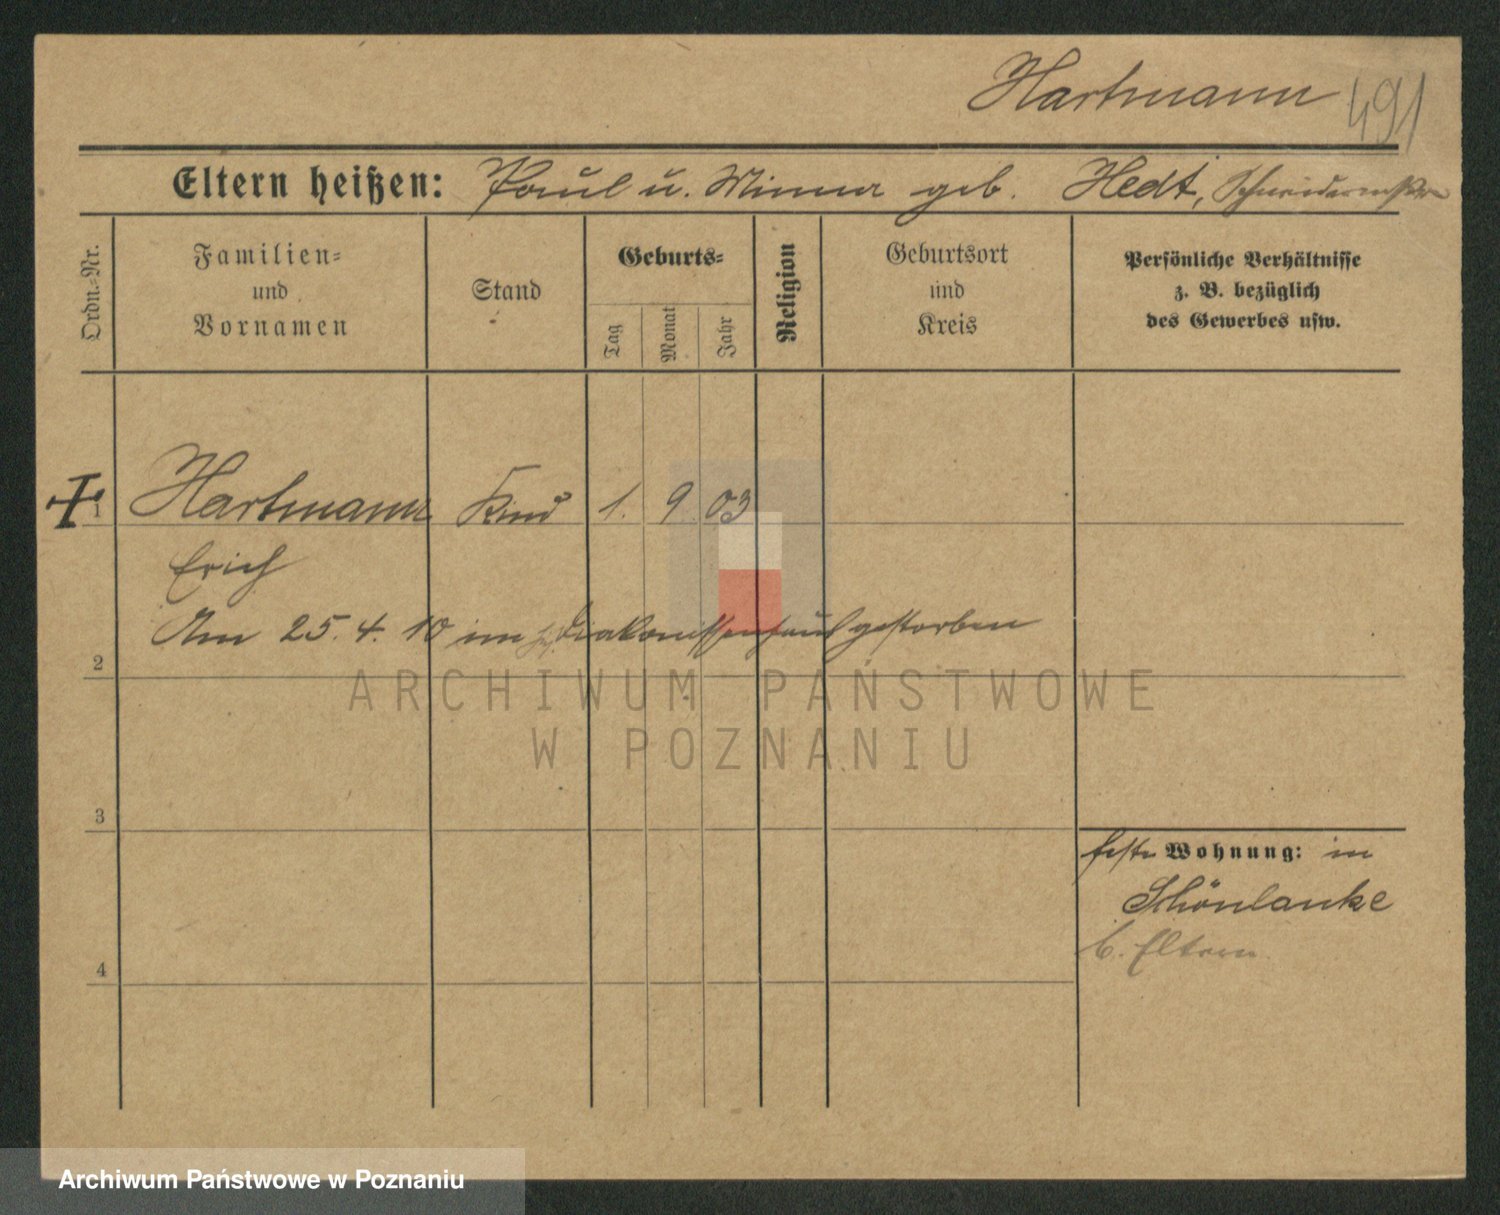 Hartmann 491
Eltern heißen: Paul u. Minna geb. Hedt, Schneidermstr.
Ordn.=Nr.
Familien=
und
Vornamen
Stand
Geburts=
Tag
Monat
Jahr
Religion
Geburtsort
und
Kreis
Persönliche Verhältnisse
z. B. bezüglich
des Gewerbes usw.
1 Hartmann Kind 1. 9. 03
Erich
Am 25. 4. 10 im Diakonissenhaus gestorben
2
ARCHIWUM PAŃSTWOWE
W POZNANIU
3
feste Wohnung: in
Schönlanke
b. Eltern
4
Archiwum Państwowe w Poznaniu